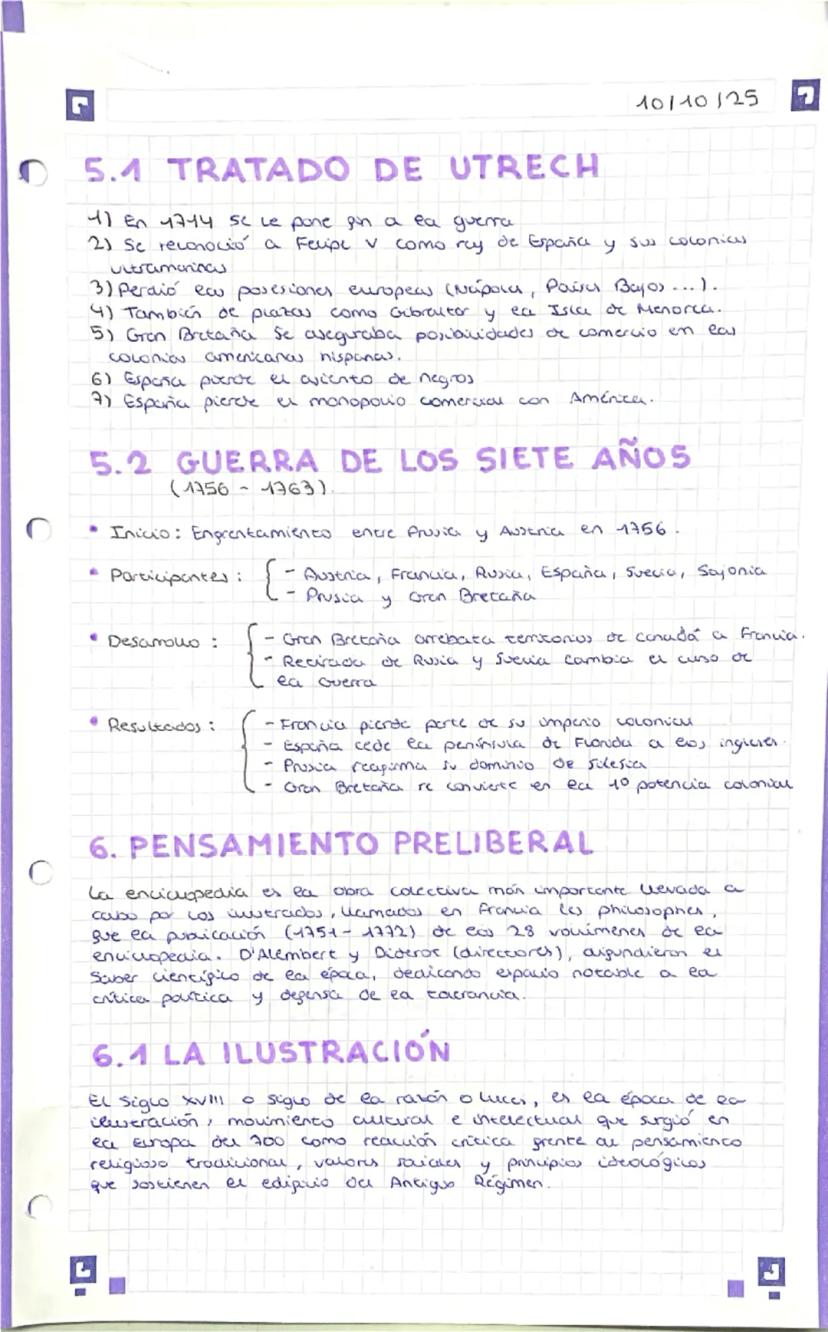 10/10/25
5.1 TRATADO DE UTRECH
1) En 1714 se le pone fin a la guerra
2) Se reconoció a Felipe V como rey de España y sus colonias
ultramarinas
3) Perdió las posesiones europeas (Nápoles, Países Bajos ...).
4) También de plazas como Gibraltar y la Isla de Menorca.
5) Gran Bretaña se aseguraba posibilidades de comercio en las
colonias americanas hispanas.
6) España pierde el asiento de negros
7) España pierde el monopolio comercial con América.
5.2 GUERRA DE LOS SIETE AÑOS
(1756 - 1763)
• Inicio: Enfrentamiento entre Prusia y Austria en 1756.
• Participantes: - Austria, Francia, Rusia, España, Suecia, Sajonia
- Prusia y Gran Bretaña
• Desarrollo: - Gran Bretaña arrebata territorios de Canadá a Francia.
- Retirada de Rusia y Suecia cambia el curso de
la Guerra
• Resultados: - Francia pierde parte de su imperio colonial
- España cede la península de Florida a los ingleses.
- Prusia reafirma su dominio de Silesia
- Gran Bretaña se convierte en la 1º potencia colonial
6. PENSAMIENTO PRELIBERAL
La enciclopedia es la obra colectiva más importante llevada a
cabo por los ilustrados, llamados en Francia les philosophes,
fue la publicación (1751 - 1772) de los 28 volúmenes de la
enciclopedia. D'Alembert y Diderot (directores), difundieron el
saber científico de la época, dedicando espacio notable a la
crítica política y defensa de la tolerancia.
6.1 LA ILUSTRACIÓN
El siglo XVIII o siglo de la razón o luces, es la época de la
ilustración, movimiento cultural e intelectual que surgió en
la Europa del 700 como reacción crítica frente al pensamiento
religioso tradicional, valores sociales y principios ideológicos
que sostienen el edificio del Antiguo Régimen.